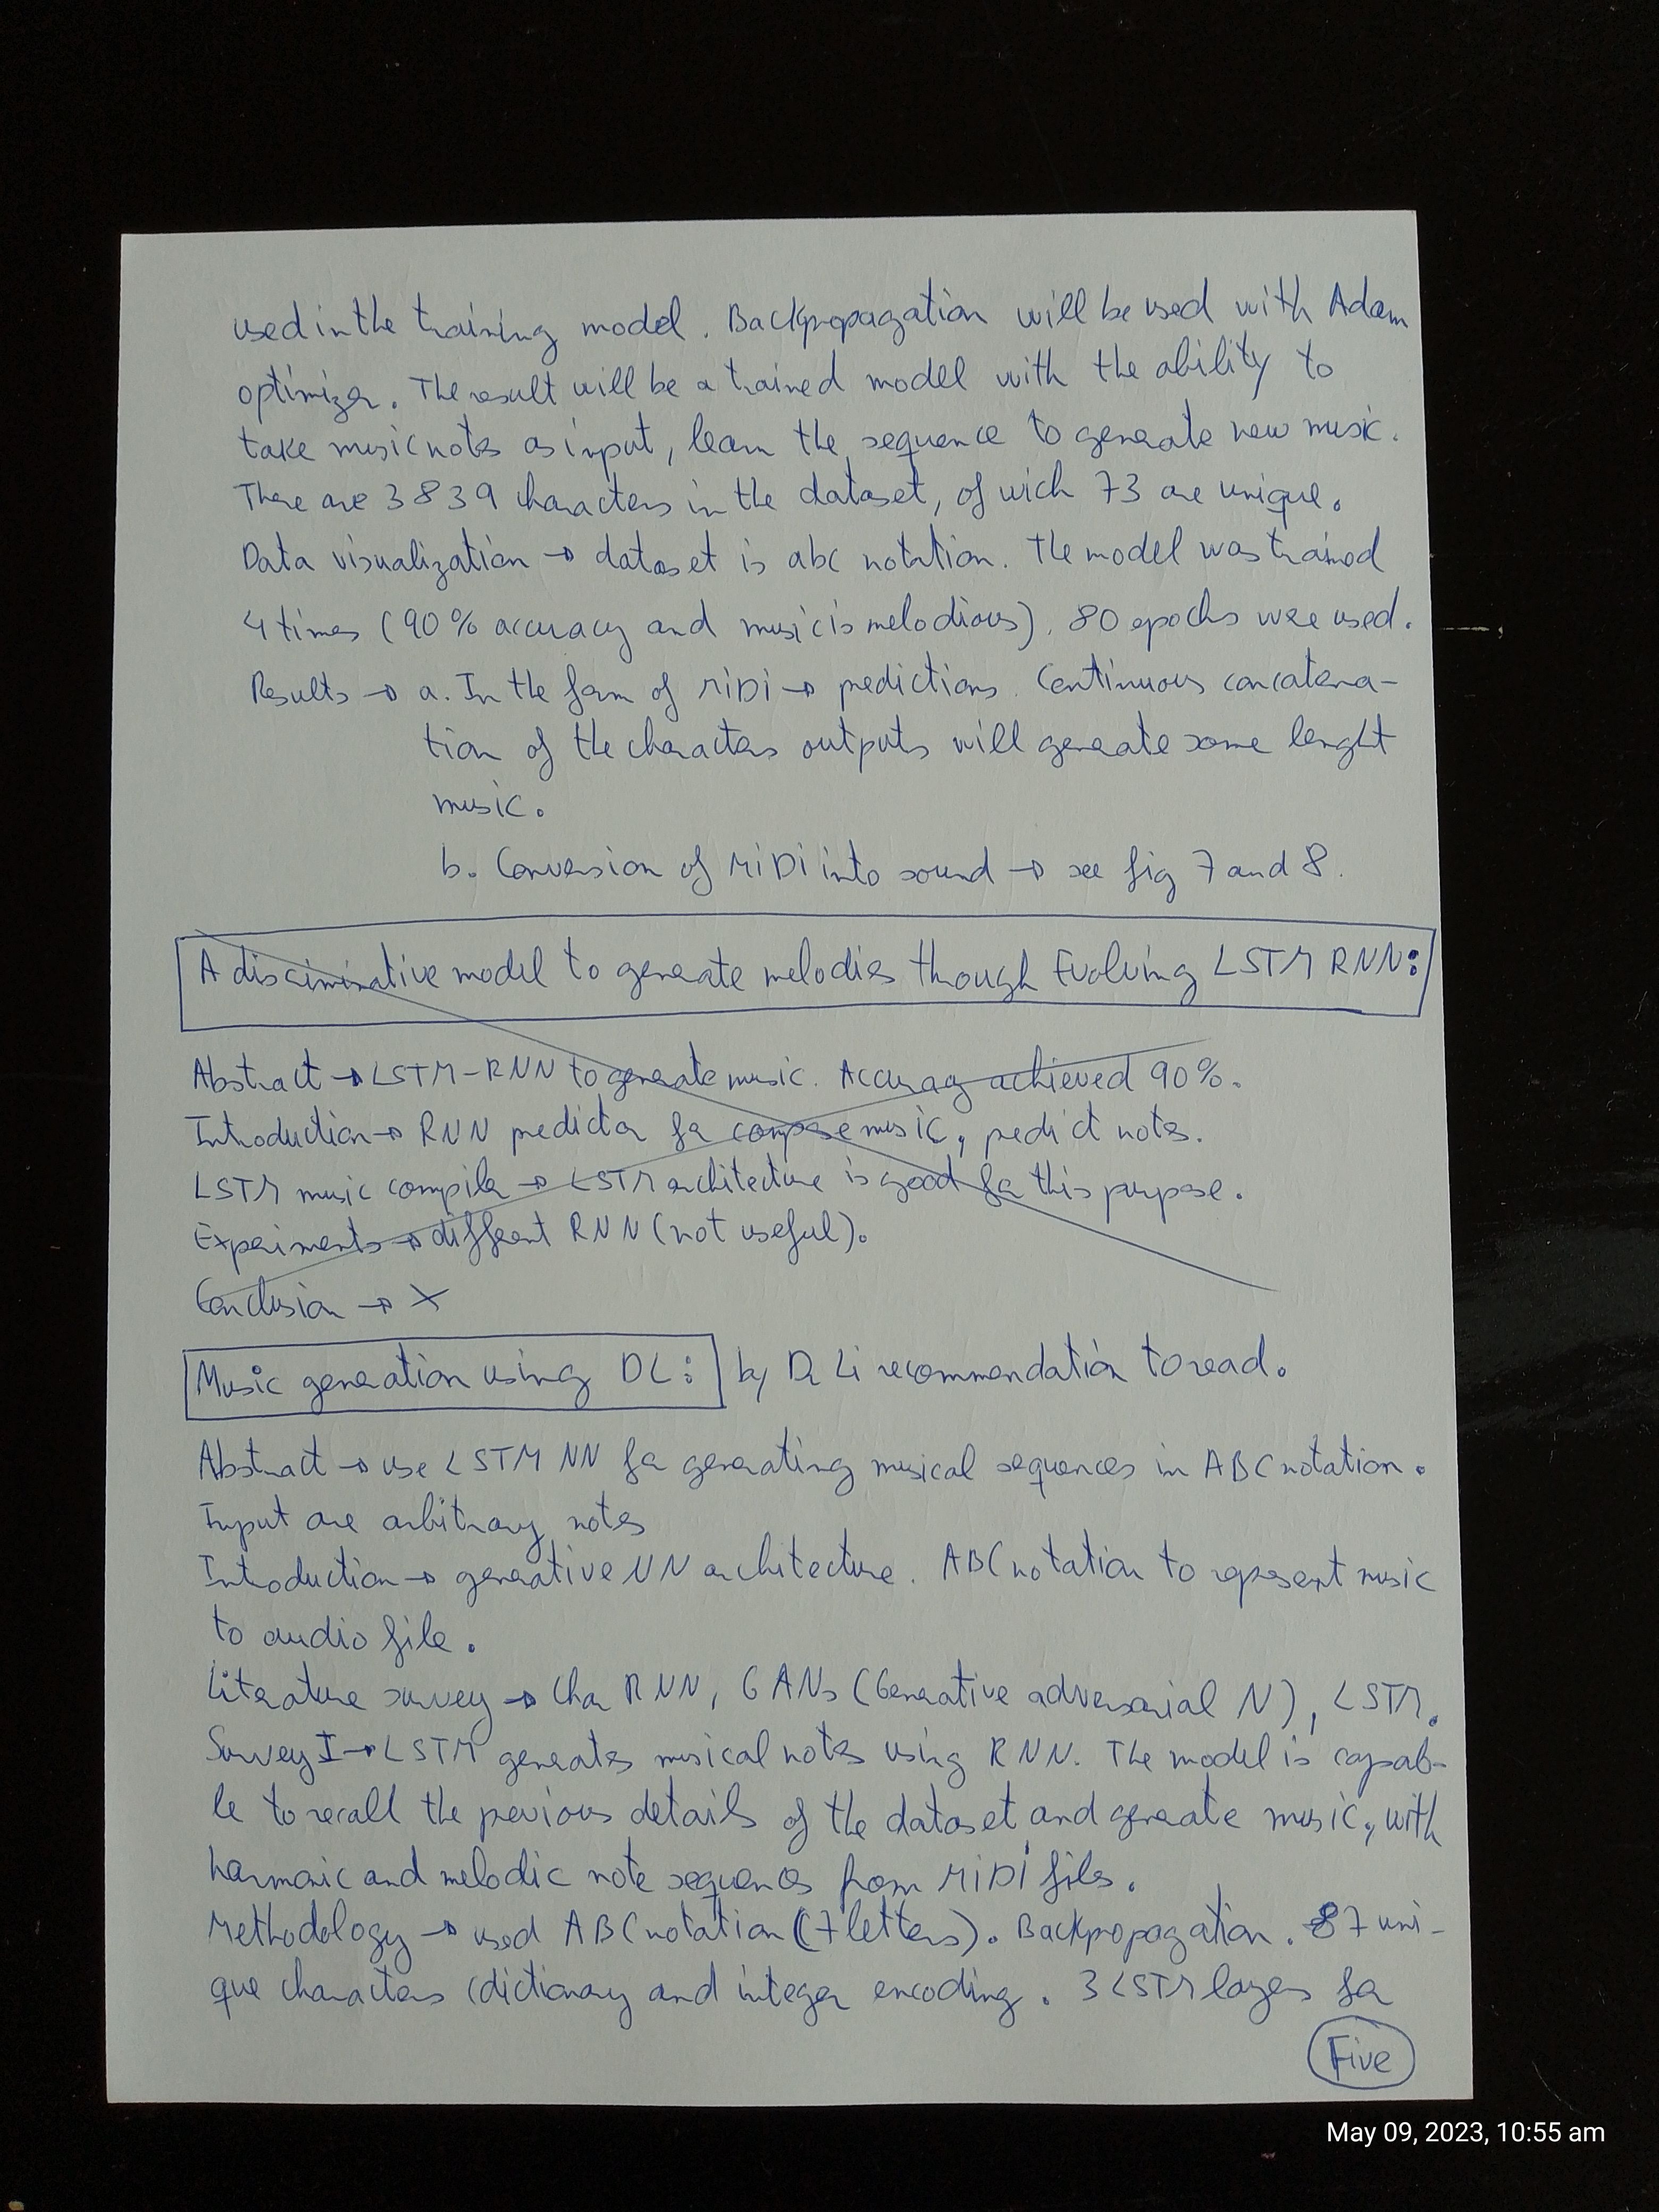 used in the training model. Backpropagation will be used with Adam
optimizer. The result will be a trained model with the ability to
take music notes as input, learn the sequence to generate new music.
There are 3839 characters in the dataset, of wich 73 are unique.
Data visualization → dataset is abc notation. The model was trained
4 times (90% accuracy and music is melodious). 80 epochs were used.
Results → a. In the form of MiDi → predictions. Continuous concatena-
tion of the characters outputs will generate some lenght
music.
b. Conversion of MiDi into sound → see fig 7 and 8.
A discriminative model to generate melodies though Evolving LSTM RNN:
Abstract → LSTM-RNN to generate music. Accuracy achieved 90%.
Introduction → RNN predictor for compose music, predict notes.
LSTM music compiler → LSTM architecture is good for this purpose.
Experiments → different RNN (not useful).
Conclusion → X
Music generation using DL: by Dr Li recommendation to read.
Abstract → use LSTM NN for generating musical sequences in ABC notation.
Input are arbitrary notes
Introduction → generative NN architecture. ABC notation to represent music
to audio file.
Literature survey → Char RNN, GANs (Generative adversarial N), LSTM.
Survey I → LSTM generates musical notes using RNN. The model is capab-
le to recall the previous details of the dataset and generate music, with
harmonic and melodic note sequences from MiDi files.
Methodology → used ABC notation (7 letters). Backpropagation. 87 uni-
que characters (dictionary and integer encoding. 3 LSTM layers for
Five
May 09, 2023, 10:55 am